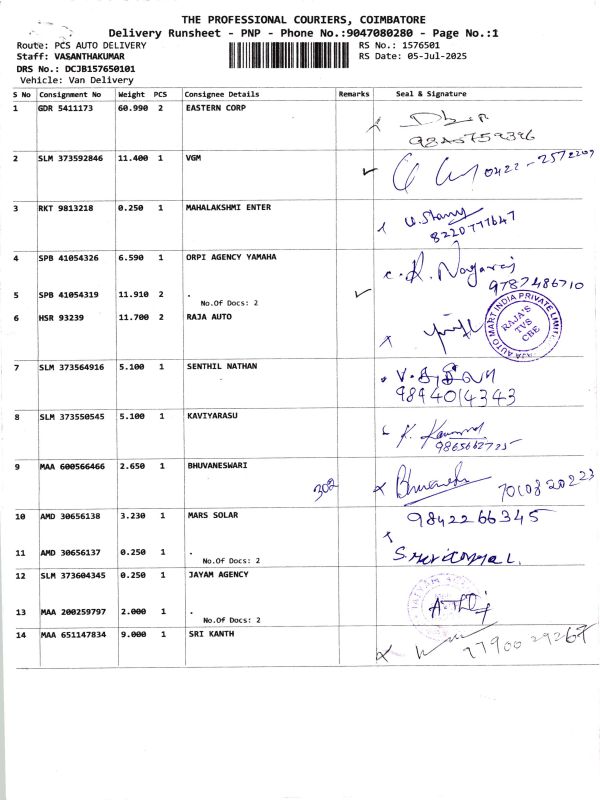 THE PROFESSIONAL COURIERS, COIMBATORE
Delivery Runsheet - PNP - Phone No.:9047080280 - Page No.:1
Route: PCS AUTO DELIVERY
RS No.: 1576501
Staff: VASANTHAKUMAR
RS Date: 05-Jul-2025
DRS No.: DCJB157650101
Vehicle: Van Delivery
S No Consignment No Weight PCS Consignee Details Remarks Seal & Signature
1 GDR 5411173 60.990 2 EASTERN CORP
2 SLM 373592846 11.400 1 VGM
0422-2572209
3 RKT 9813218 0.250 1 MAHALAKSHMI ENTER
8220777647
4 SPB 41054326 6.590 1 ORPI AGENCY YAMAHA
C. R. Nagaraj
9787486710
5 SPB 41054319 11.910 2 .
No.Of Docs: 2
6 HSR 93239 11.700 2 RAJA AUTO
RAJA AUTO MART INDIA PRIVATE LIMIT
RAJA'S
TVS
CBE
7 SLM 373564916 5.100 1 SENTHIL NATHAN
9894014343
8 SLM 373550545 5.100 1 KAVIYARASU
9865662725
9 MAA 600566466 2.650 1 BHUVANESWARI
302
7010820223
10 AMD 30656138 3.230 1 MARS SOLAR
9842266345
11 AMD 30656137 0.250 1 .
No.Of Docs: 2
12 SLM 373604345 0.250 1 JAYAM AGENCY
13 MAA 200259797 2.000 1 .
No.Of Docs: 2
14 MAA 651147834 9.000 1 SRI KANTH